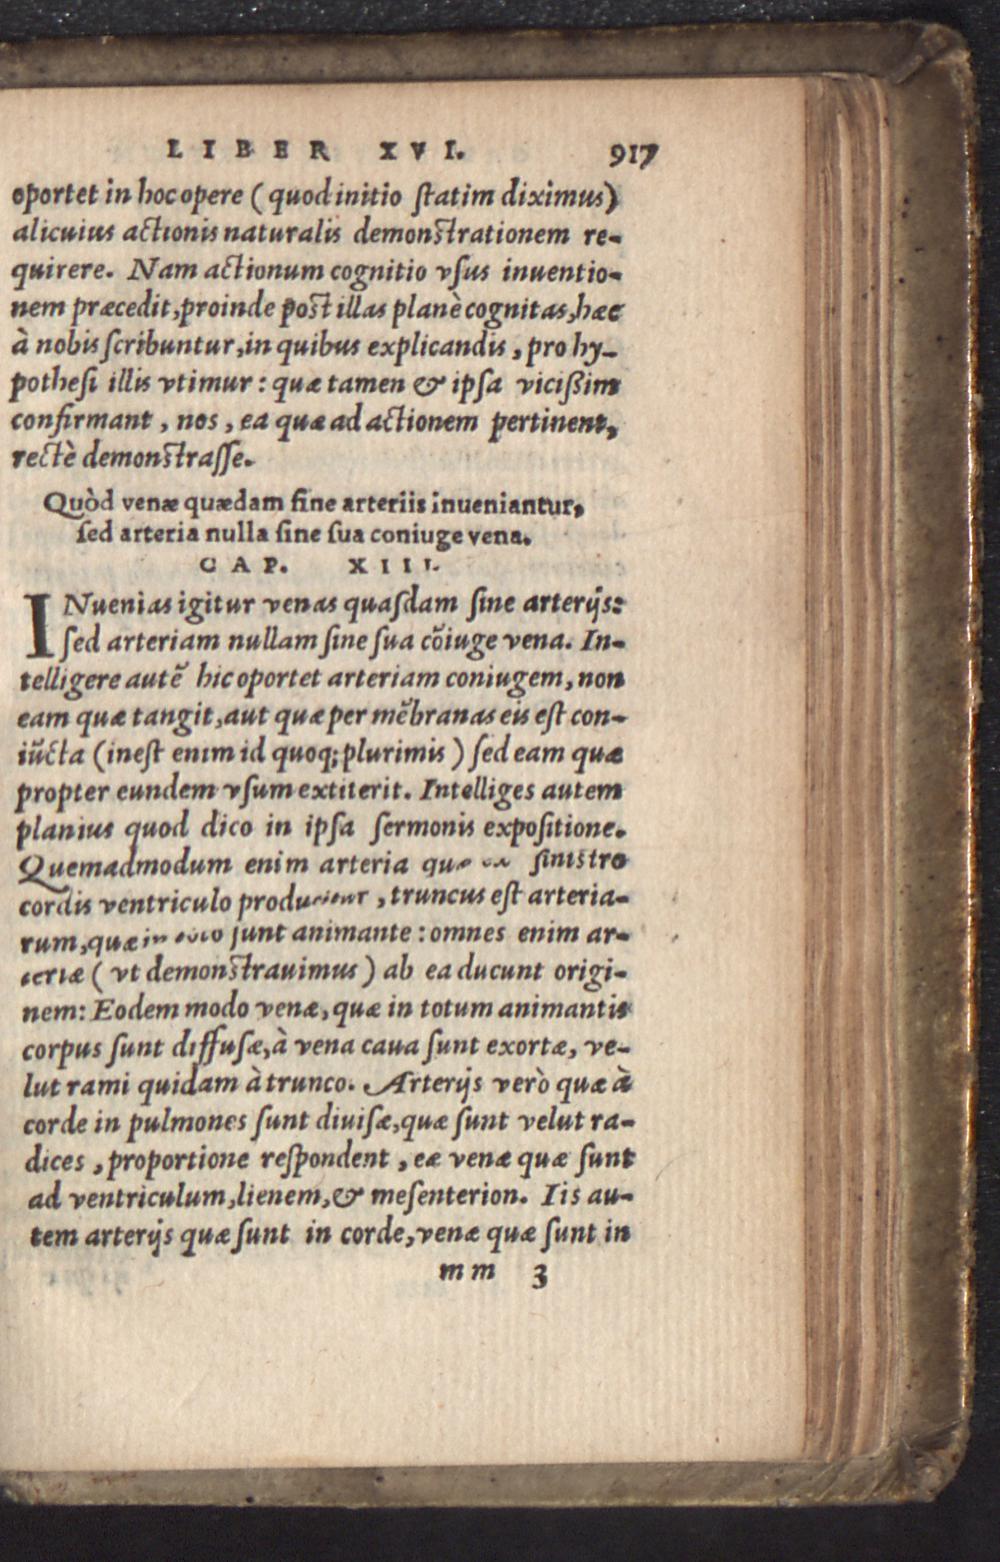 LIBER XVI. 917
oportet in hoc opere (quod initio ſtatim diximus)
alicuius actionis naturalis demonſtrationem re-
quirere. Nam actionum cognitio vſus inuentio-
nem præcedit, proinde poſt illas planè cognitas, hæc
à nobis ſcribuntur, in quibus explicandis, pro hy-
potheſi illis vtimur: quæ tamen & ipſa viciſsim
confirmant, nos, ea quæ ad actionem pertinent,
rectè demonſtraſſe.
Quòd venæ quædam ſine arteriis inueniantur,
ſed arteria nulla ſine ſua coniuge vena.
CAP. XIII.
INuenias igitur venas quaſdam ſine arterijs:
ſed arteriam nullam ſine ſua cõiuge vena. In-
telligere autẽ hic oportet arteriam coniugem, non
eam quæ tangit, aut quæ per mẽbranas eis eſt con-
iũcta (ineſt enim id quoq; plurimis) ſed eam quæ
propter eundem vſum extiterit. Intelliges autem
planius quod dico in ipſa ſermonis expoſitione.
Quemadmodum enim arteria quæ ex ſiniſtro
cordis ventriculo producitur, truncus eſt arteria-
rum, quæ in toto ſunt animante: omnes enim ar-
teriæ (vt demonſtrauimus) ab ea ducunt origi-
nem: Eodem modo venæ, quæ in totum animantis
corpus ſunt diffuſæ, à vena caua ſunt exortæ, ve-
lut rami quidam à trunco. Arterijs verò quæ à
corde in pulmones ſunt diuiſæ, quæ ſunt velut ra-
dices, proportione reſpondent, eæ venæ quæ ſunt
ad ventriculum, lienem, & meſenterion. Iis au-
tem arterijs quæ ſunt in corde, venæ quæ ſunt in
mm 3